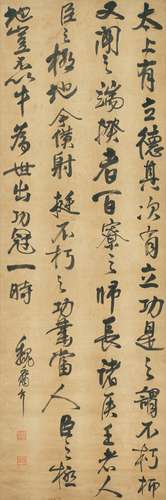 太上有立德其次有立功是之謂不朽抑
又聞之端揆者百寮之師長諸侯王者人
臣之極地今僕射挺不朽之功業當人臣之極
地豈不以才為世出功冠一時
魏裔介